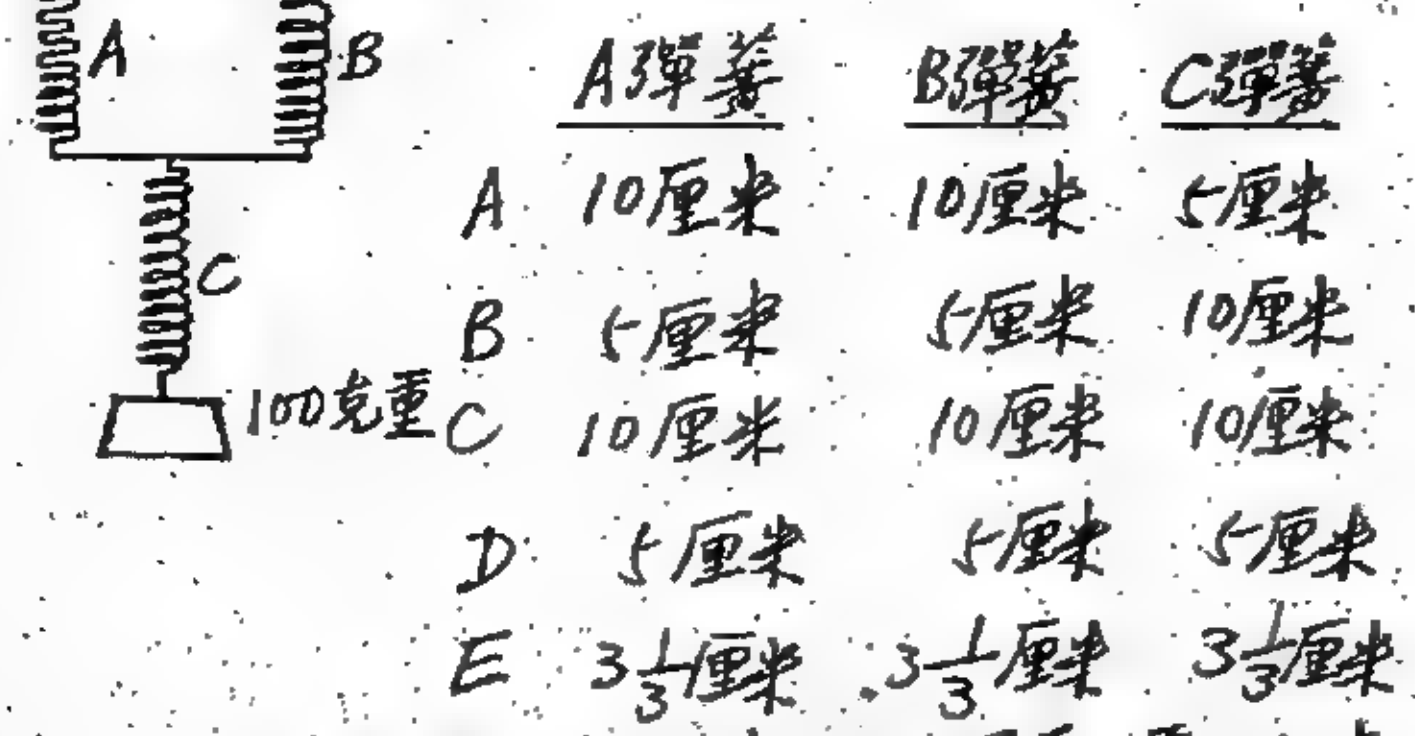 A B
A彈簧 B彈簧 C彈簧
A 10厘米 10厘米 5厘米
C
B 5厘米 5厘米 10厘米
100克重
C 10厘米 10厘米 10厘米
D 5厘米 5厘米 5厘米
E 3 1/3厘米 3 1/3厘米 3 1/3厘米